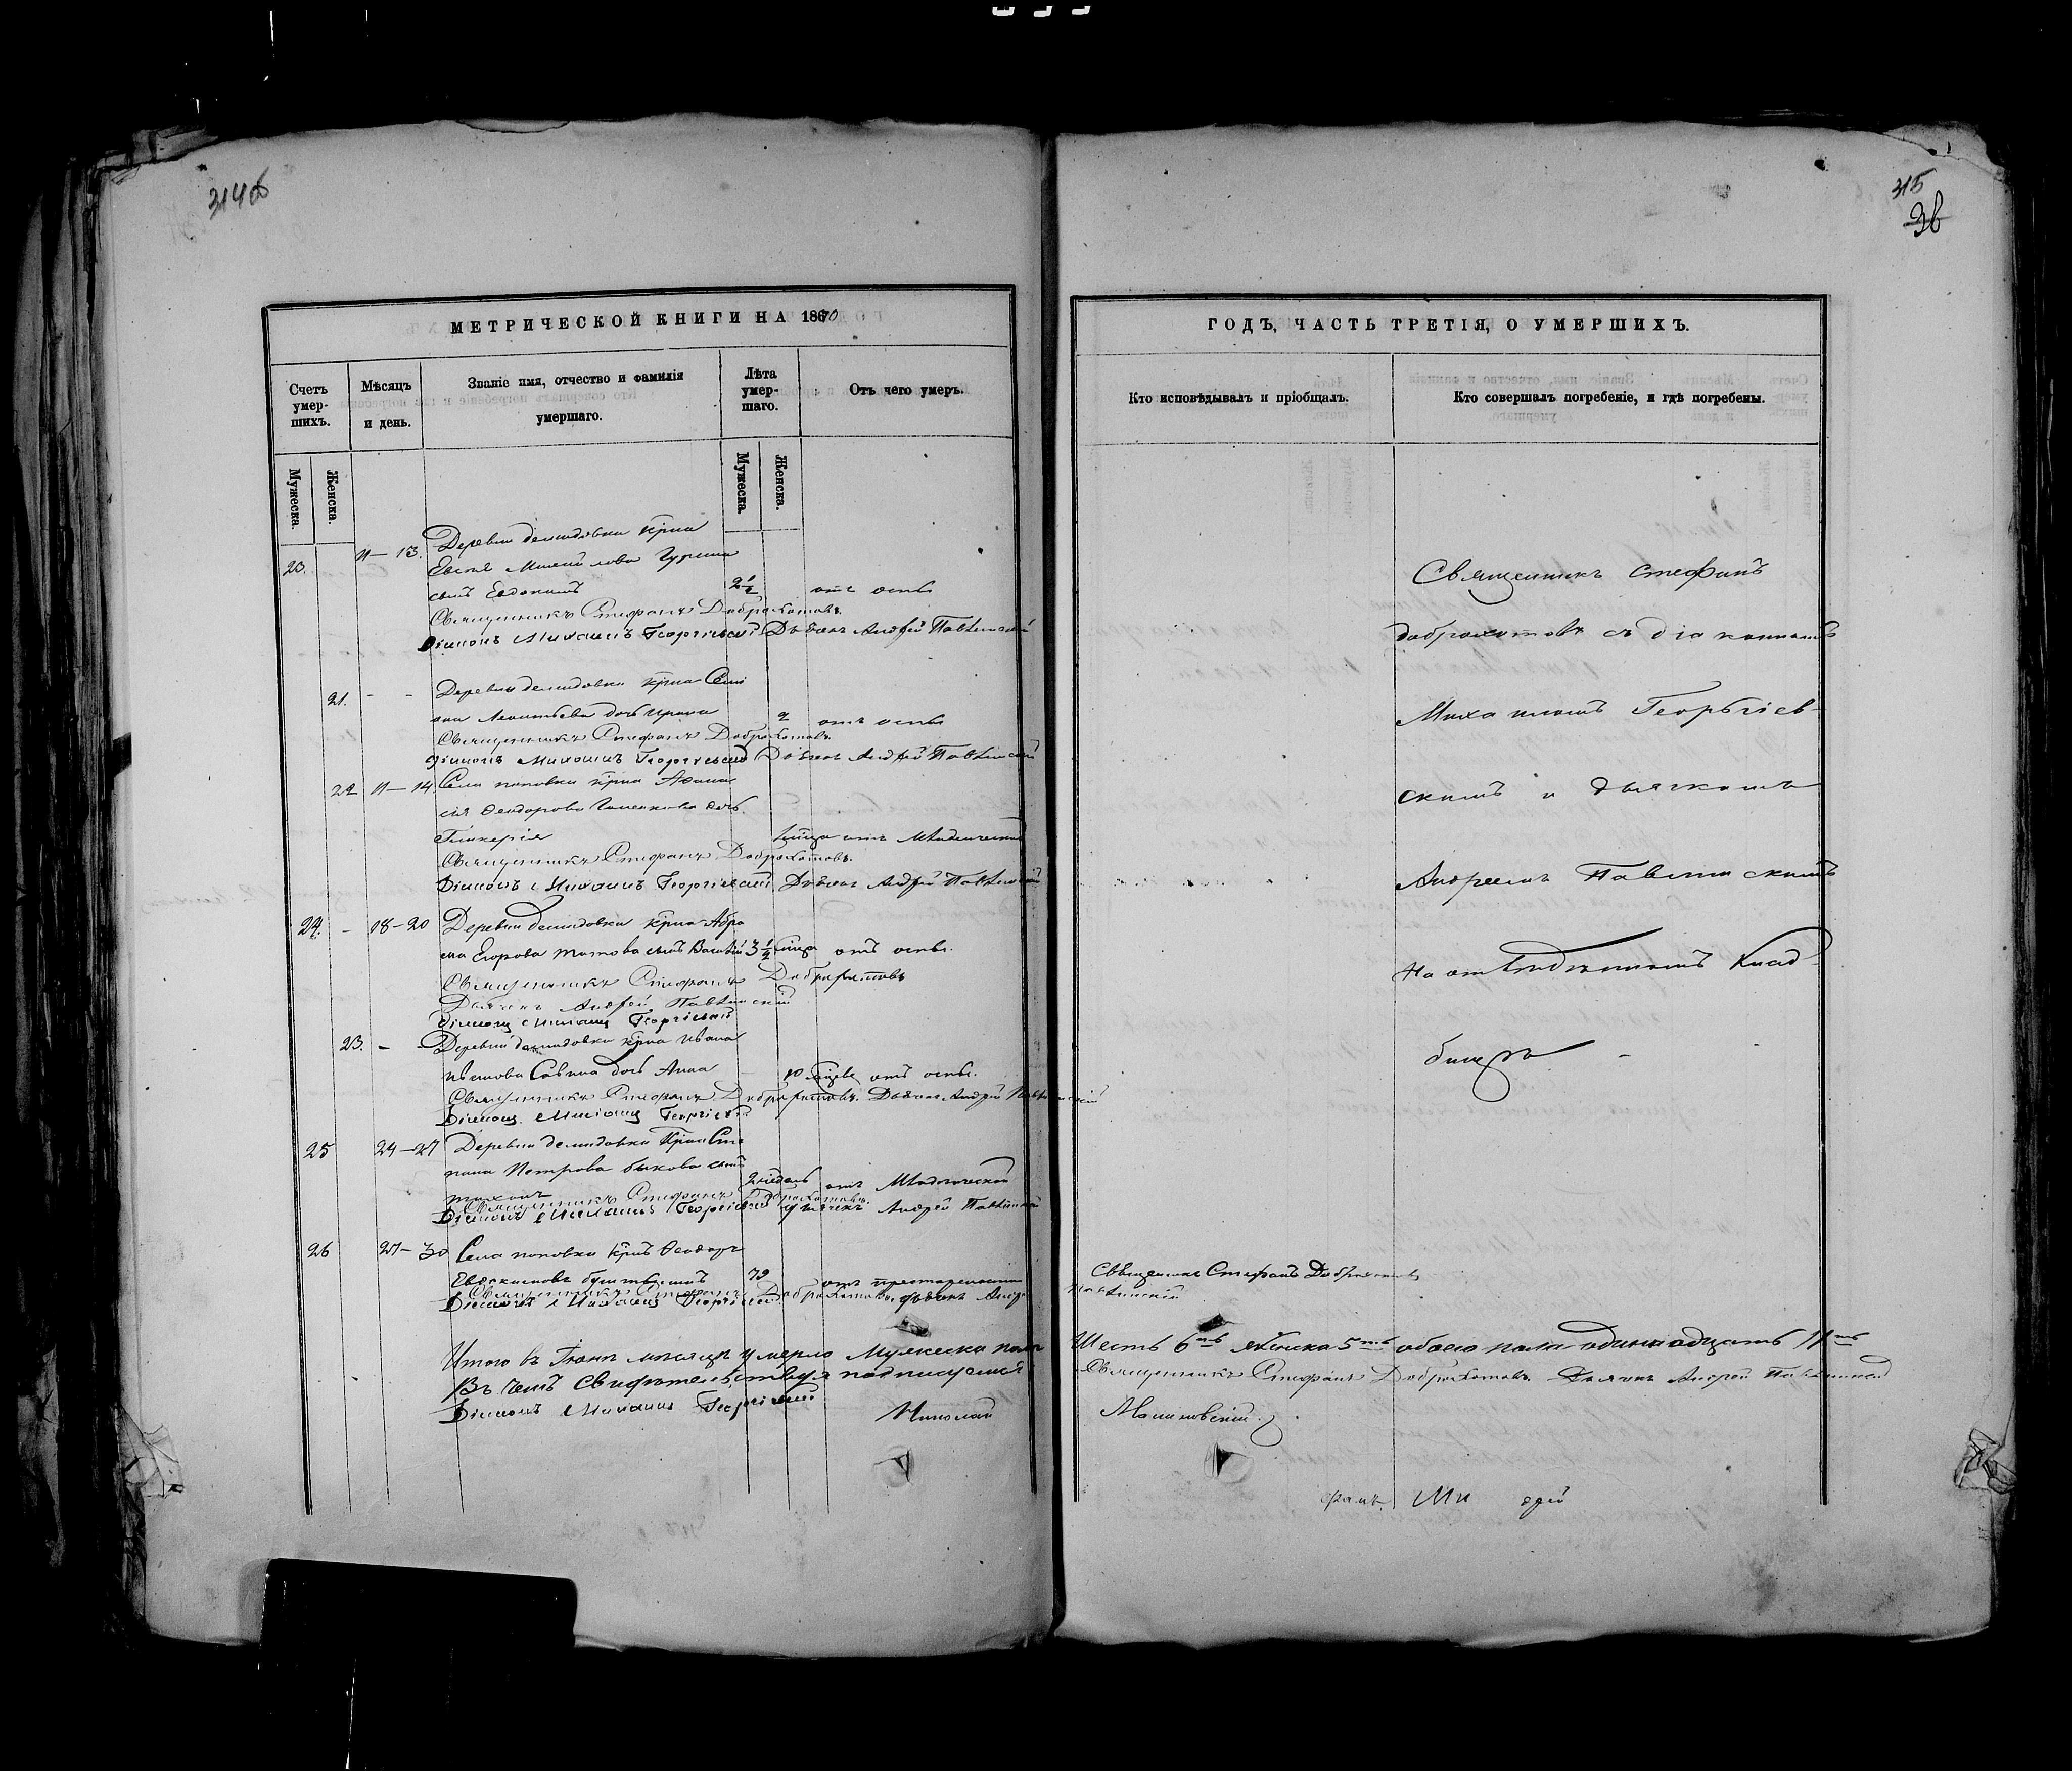 314об
МЕТРИЧЕСКОЙ КНИГИ НА 1870
Счетъ умер-шихъ.
Мѣсяцъ и день.
Званіе имя, отчество и фамилія умершаго.
Лѣта умер-шаго.
Отъ чего умеръ.
Мужеска.
Женска.
Мужеска.
Женска.
Деревни демидовки крна
23. 11–13.
сынъ Евдокимъ 2½ отъ оспы
Священникъ Стефанъ Доброхотовъ.
Діаконъ Михаилъ Георгіевскій Дьячекъ Андрей Павлинскій
21. - - Деревни демидовки крна Семі
она Леонтьева дочь Ирина 2 отъ оспы
Священникъ Стефанъ Доброхотовъ.
Діаконъ Михаилъ Георгіевскій Дьячекъ Андрей Павлинскій
22 11–14. Села поповки крна Афана
сія Ѳеодорова дочь
Гликерія отъ младенческой
Священникъ Стефанъ Доброхотовъ.
Діаконъ Михаилъ Георгіевскій Дьячекъ Андрей Павлинскій
24. - 18–20 Деревни демидовки крна Абра
ма Егорова Титова сынъ Василій 3½ мца отъ оспы.
Священникъ Стефанъ Доброхотовъ
Дьячекъ Андрей Павлинскій
Діаконъ Михаилъ Георгіевскій
23. - - Деревни демидовки крна Ивана
Иванова Савина дочь Анна 10 мцевъ отъ оспы.
Священникъ Стефанъ Доброхотовъ. Дьячекъ Андрей Павлинскій
Діаконъ Михаилъ Георгіевскій
25 24–27 Деревни демидовки крна Сте
пана Петрова быкова сынъ
Тихонъ 2 недель отъ Младенческой
Священникъ Стефанъ Доброхотовъ.
Діаконъ Михаилъ Георгіевскій Дьячекъ Андрей Павлинскій
26 27–30 Села поповки крнъ Ѳеодоръ
Евдокимовъ 79 отъ престарелости
Священникъ Стефанъ Доброхотовъ. Дьячекъ Андр
Діаконъ Михаилъ Георгіевскій
Итого въ Іюнѣ мѣсяцѣ умерло Мужеска пола
Въ чемъ свидѣтельствуя подписуемся
Діаконъ Михаилъ Георгіевскій
Николай
315
36
ГОДЪ, ЧАСТЬ ТРЕТІЯ, О УМЕРШИХЪ.
Кто исповѣдывалъ и пріобщалъ.
Кто совершалъ погребеніе, и гдѣ погребены.
Священникъ Стефанъ
доброхотовъ съ діакономъ
Михаиломъ Георгіев-
скимъ и дьячкомъ
Андреемъ Павлинскимъ
На отведенномъ клад-
бищѣ
Священникъ Стефанъ Доброхотовъ
Павлинскій
Шесть 6ть женска 5ть обоего пола одиннадцать 11ть
Священникъ Стефанъ Доброхотовъ. Дьячекъ Андрей Павлинскій
Малиновскій.
фанъ. Ми дрей